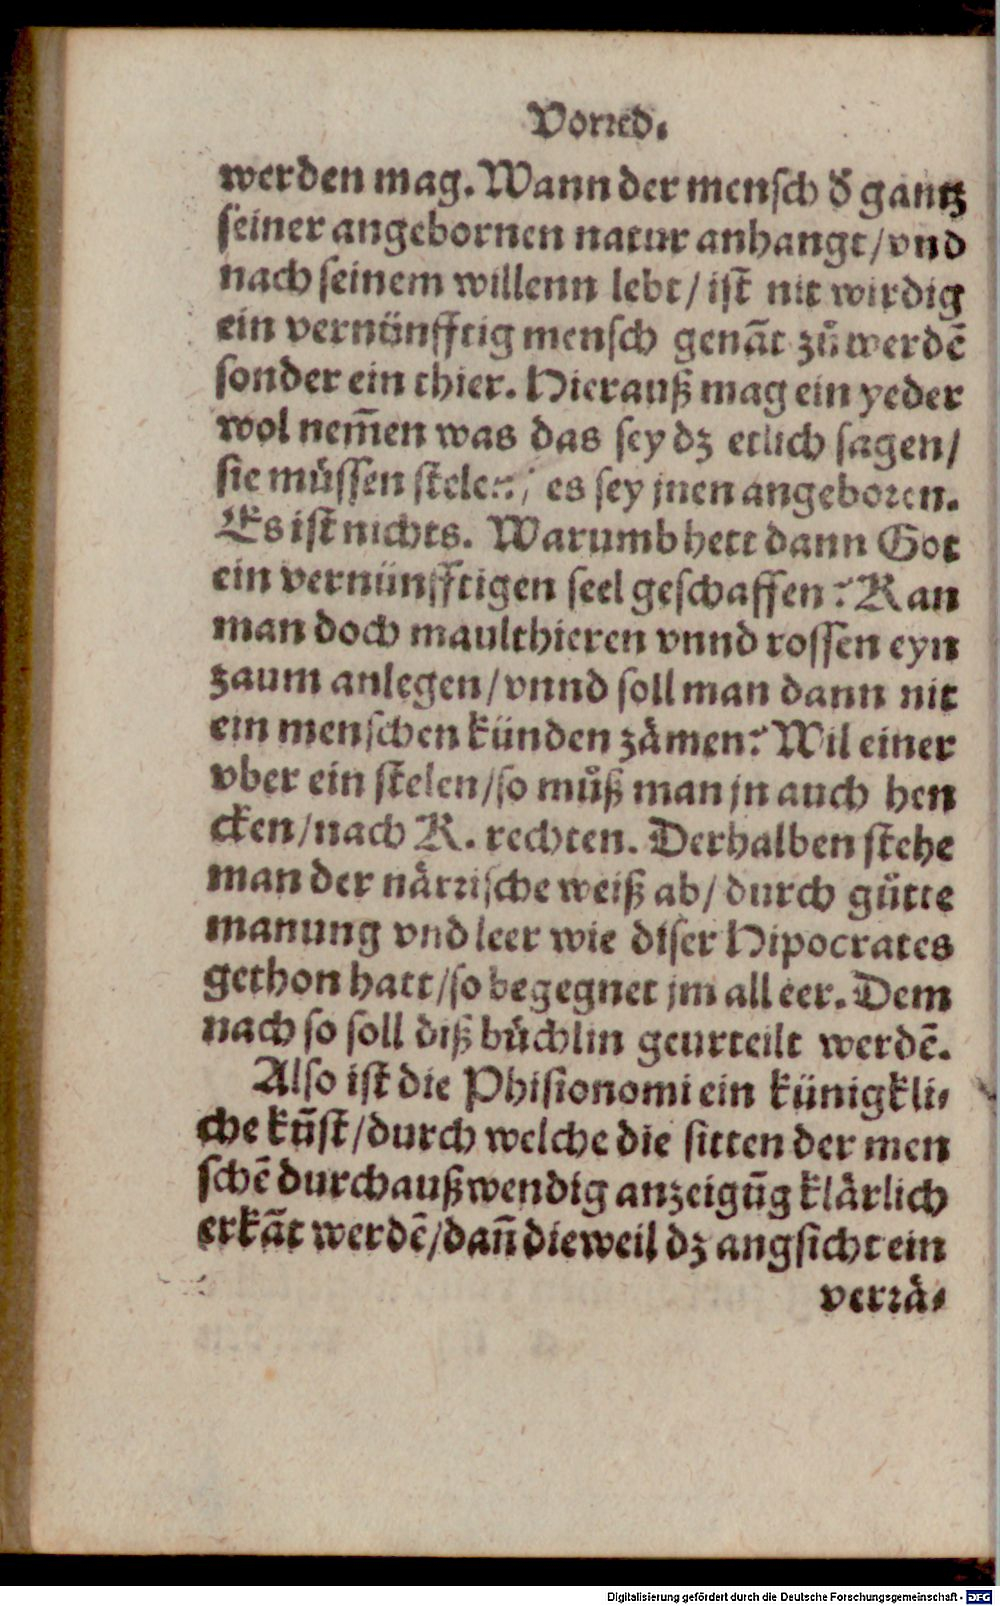 Vorred.
werden mag. Wann der mensch đ gantz
seiner angebornen natur anhangt/vnd
nach seinem willenn lebt/ist nit wirdig
ein vernünfftig mensch genãt zů werdẽ
sonder ein thier. Hierauß mag ein yeder
wol nem̃en was das sey dz etlich sagen/
sie müssen stelen/ es sey jnen angeboren.
Es ist nichts. Warumb hett dann Got
ein vernünfftigen seel geschaffen? Kan
man doch maulthieren vnnd rossen eyn
zaum anlegen/vnnd soll man dann nit
ein menschen künden zämen? Wil einer
vber ein stelen/so můß man jn auch hen
cken/nach K. rechten. Derhalben stehe
man der närrische weiß ab/durch gütte
manung vnd leer wie diser Hipocrates
gethon hatt/so begegnet jm all eer. Dem
nach so soll diß büchlin geurteilt werdẽ.
Also ist die Phisionomi ein künigkli-
che kũst/durch welche die sitten der men
schẽ durch außwendig anzeigũg klärlich
erkãt werdẽ/dañ dieweil dz angsicht ein
verrä-
Digitalisierung gefördert durch die Deutsche Forschungsgemeinschaft - DFG